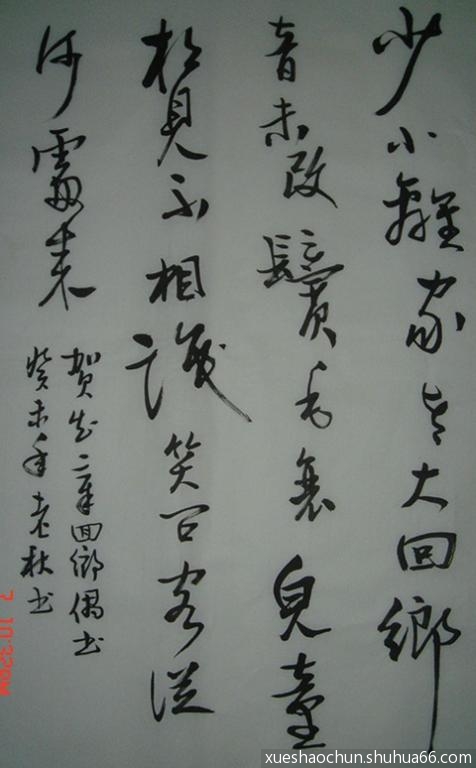 少小離家老大回鄉
音未改鬢毛衰兒童
相見不相識笑问客從
何處来
賀知章回鄉偶书
癸未年老秋书
xueshaochun.shuhua66.com